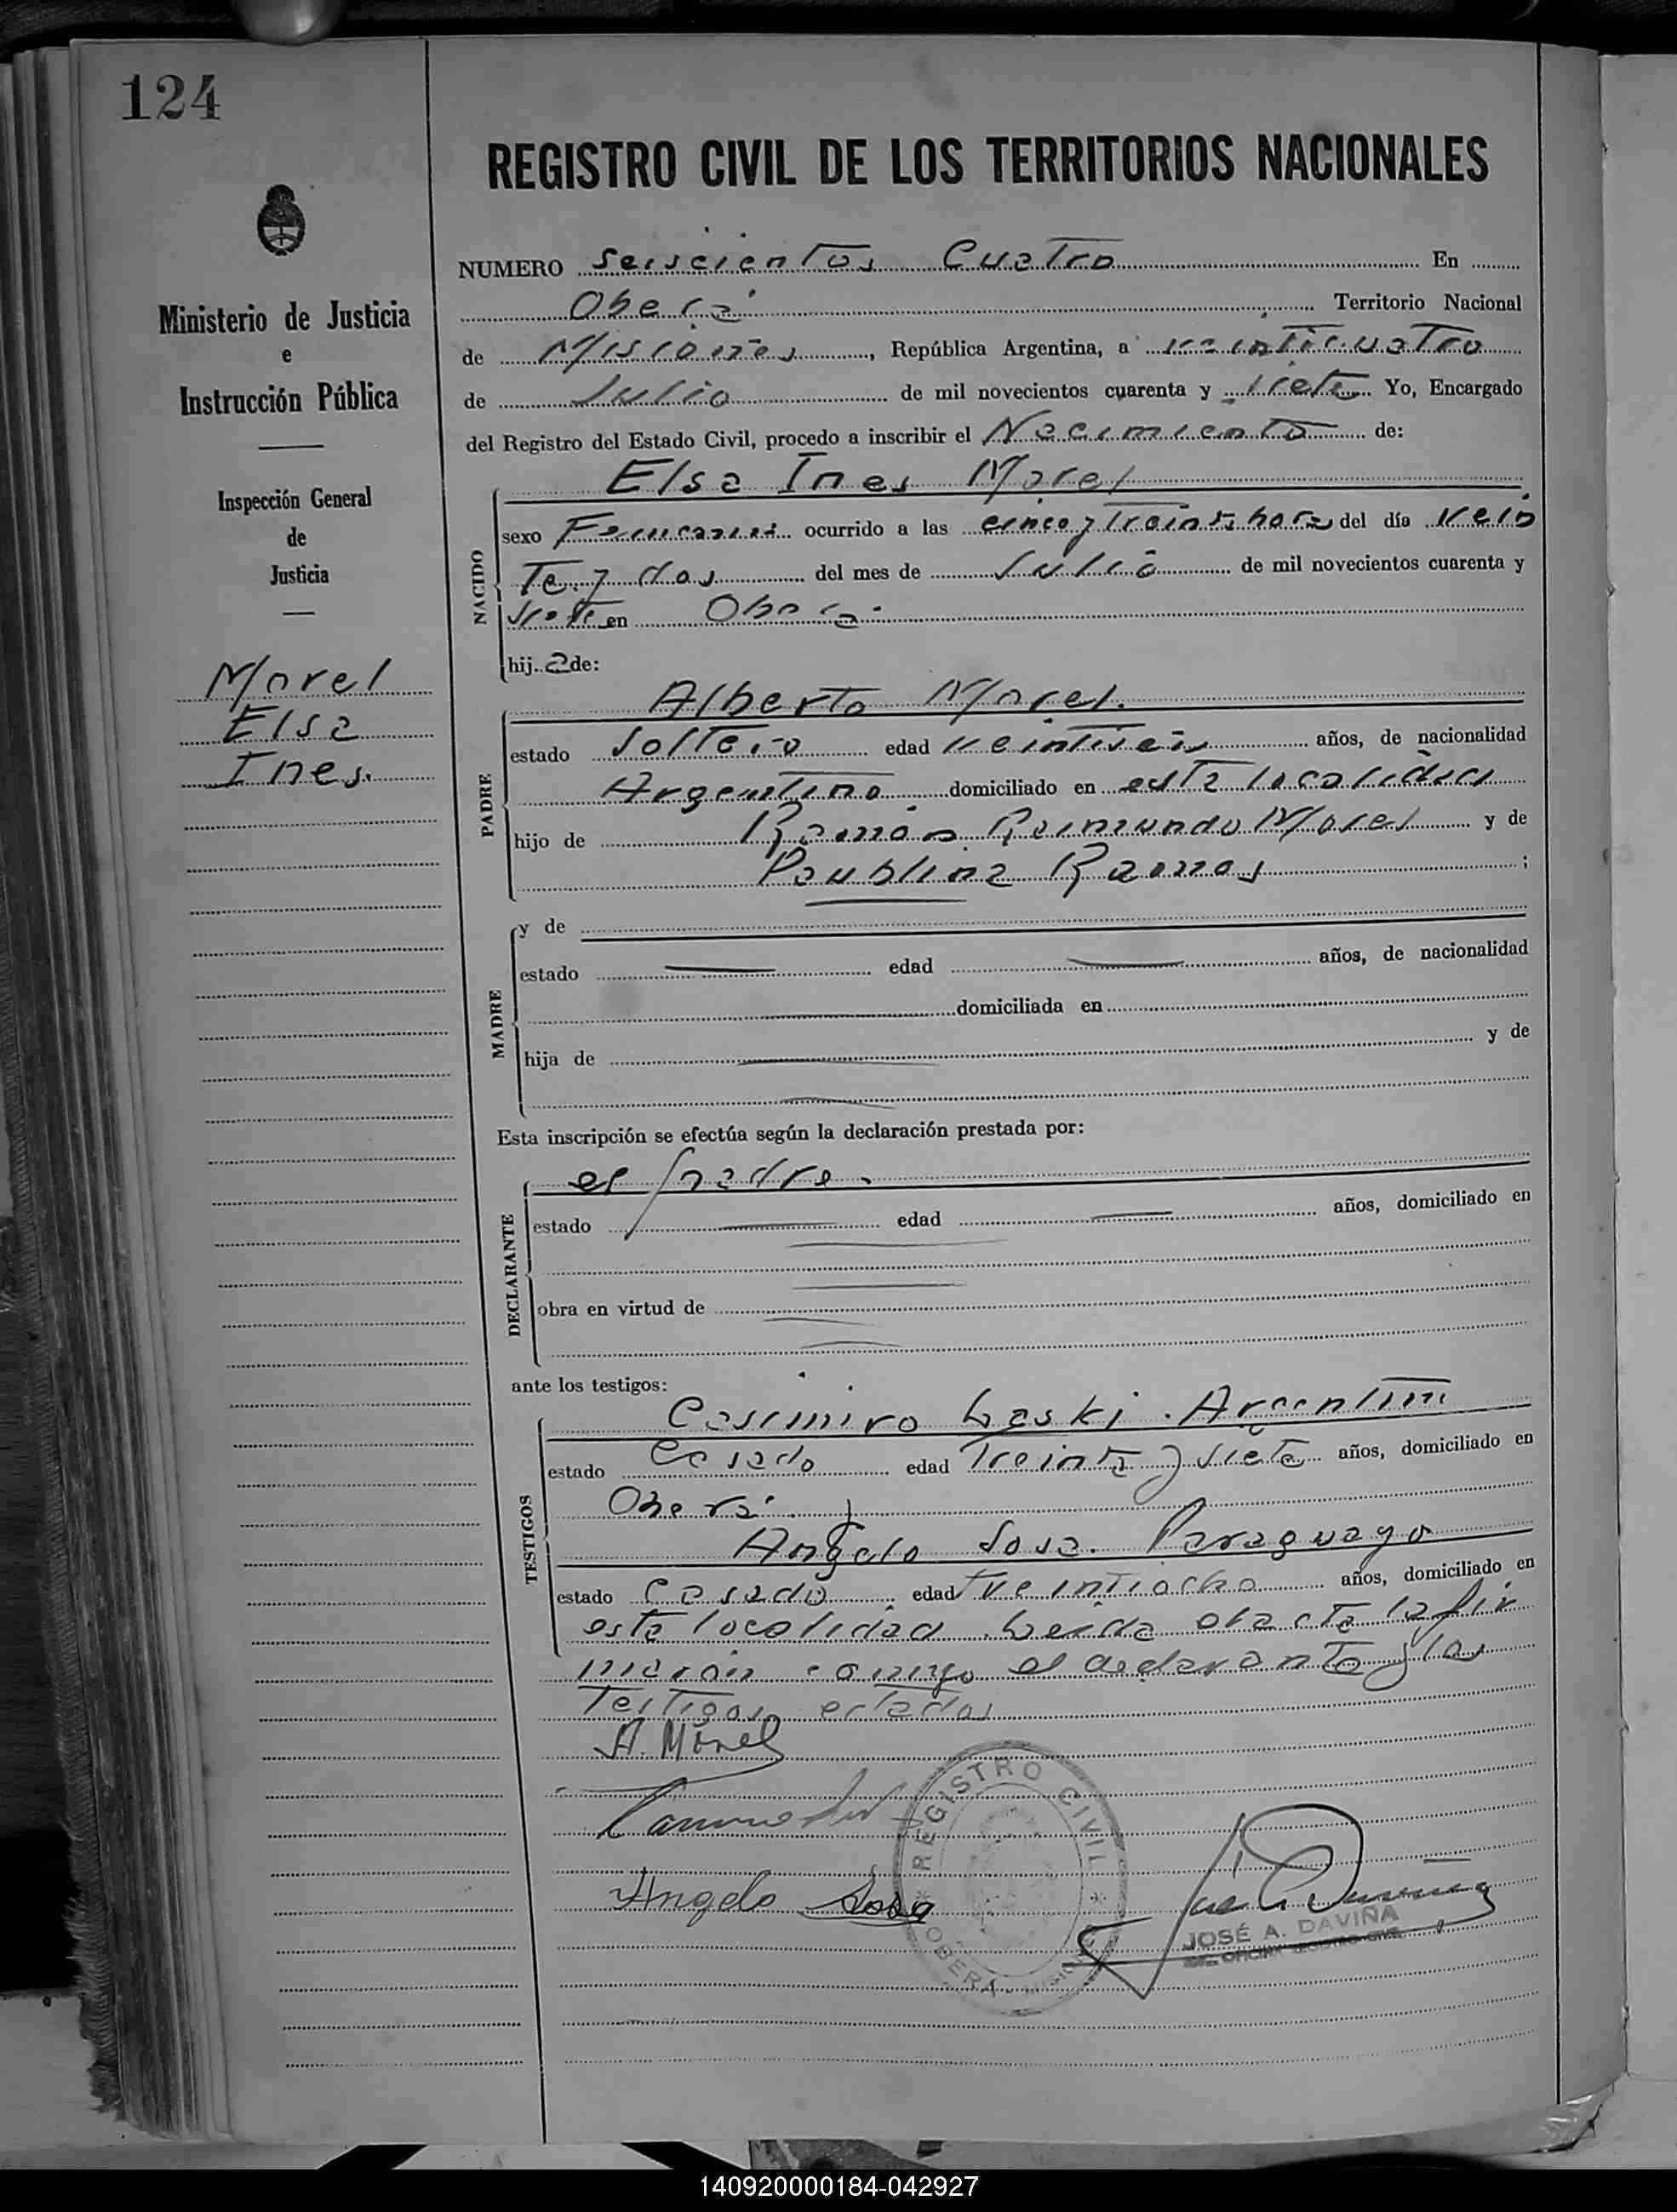 124
REGISTRO CIVIL DE LOS TERRITORIOS NACIONALES
Ministerio de Justicia
e
Instrucción Pública
Inspección General
de
Justicia
Morel
Elsa
Ines.
NUMERO Seiscientos Cuatro En
Oberá Territorio Nacional
de Misiones, República Argentina, a veinticuatro
de Julio de mil novecientos cuarenta y siete Yo, Encargado
del Registro del Estado Civil, procedo a inscribir el Nacimiento de:
NACIDO
Elsa Ines Morel
sexo Femenino ocurrido a las cinco y treinta horas del día vein
te y dos del mes de Julio de mil novecientos cuarenta y
siete en Oberá
hij a de:
PADRE
Alberto Morel.
estado Soltero edad veintiseis años, de nacionalidad
Argentino domiciliado en esta localidad
hijo de Ramón Raimundo Morel y de
Paublina Ramos ;
MADRE
y de
estado edad años, de nacionalidad
domiciliada en
hija de y de
Esta inscripción se efectúa según la declaración prestada por:
DECLARANTE
el padre.
estado edad años, domiciliado en
obra en virtud de
ante los testigos:
TESTIGOS
Casimiro Laski. Argentino
estado Casado edad Treinta y siete años, domiciliado en
Oberá. y
Angelo Sosa. Paraguayo
estado Casado edad veintiocho años, domiciliado en
esta localidad. Leida el acta la fir
marón conmigo el declarante y los
Testigos citados
A. Morel
Angelo Sosa
REGISTRO CIVIL
OBERA - MISIONES
JOSÉ A. DAVIÑA
140920000184-042927